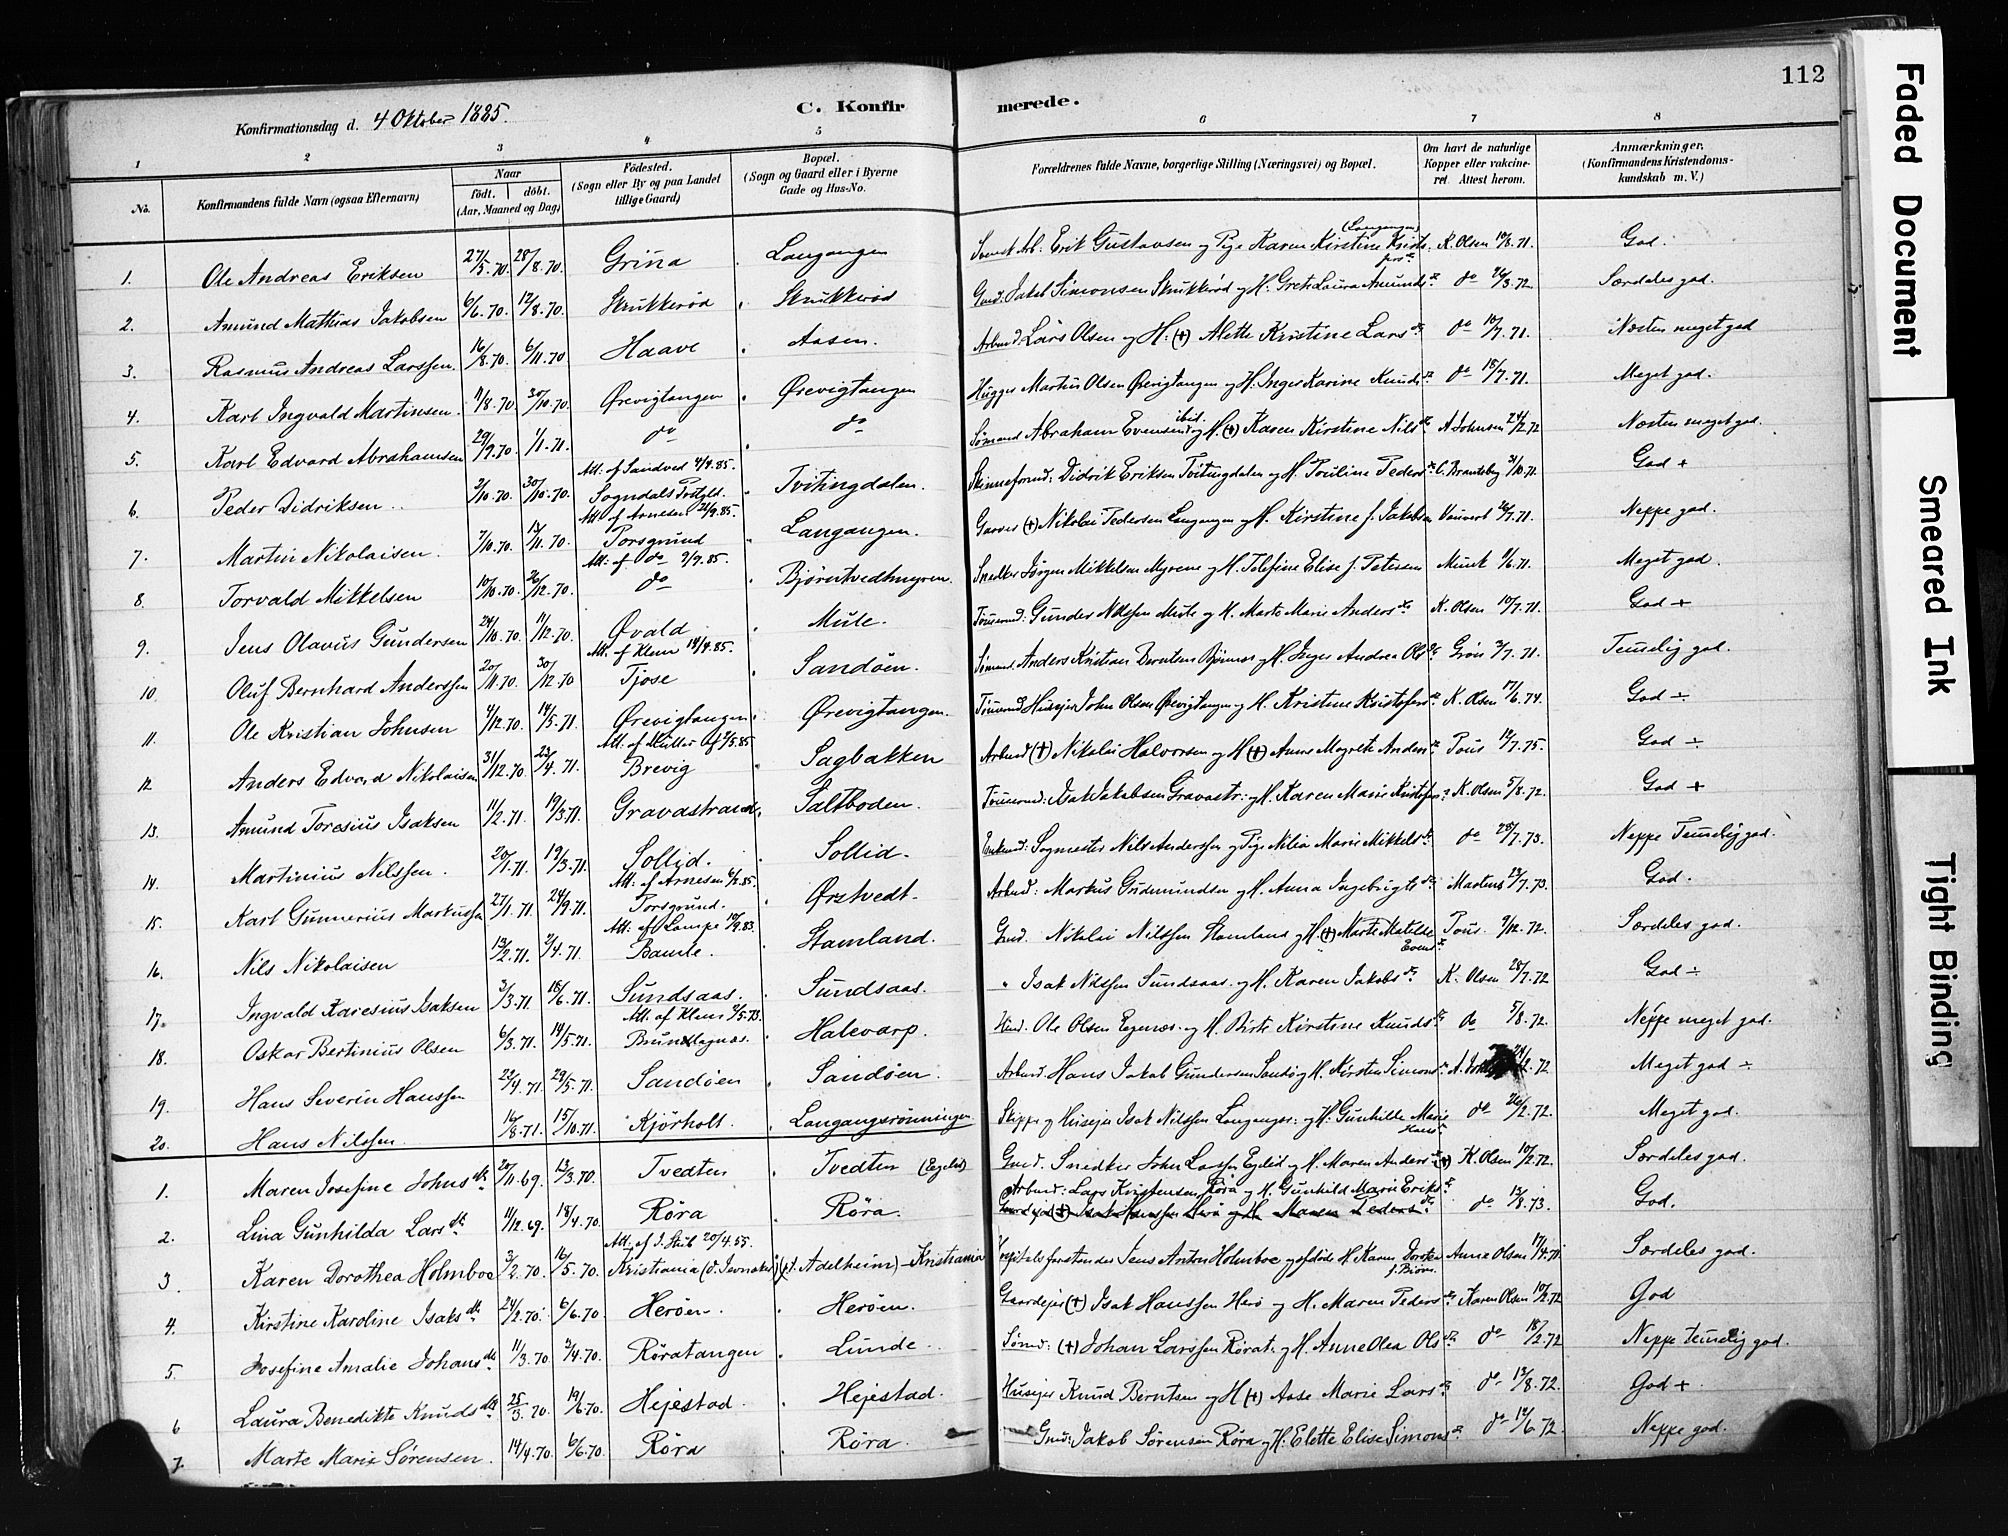 112
Konfirmationsdag d. 4 Oktober 1885.
C. Konfirmerede.
1 2 3 4 5 6 7 8
No.
Konfirmandens fulde Navn (ogsaa Efternavn)
Naar
födt. döbt.
(Aar, Maaned og Dag)
Födested.
(Sogn eller By og paa Landet
tillige Gaard)
Bopæl.
(Sogn og Gaard eller i Byerne
Gade og Hus-No.
Forældrenes fulde Navne, borgerlige Stilling (Næringsvei) og Bopæl.
Om havt de naturlige
Kopper eller vakcine-
ret. Attest herom.
Anmærkninger.
(Konfirmandens Kristendoms-
kundskab m. V.)
1. Ole Andreas Eriksen 27/5.70. 28/8.70. Grina Langangen Svensk Arb: Erik Gustavsen og Pige Karen Kirstine (Langangen) K. Olsen 10/8.71. God.
2. Amund Mathias Jakobsen 6/6.70. 12/8.70. Skrukkerød Skrukkerød Gmd: Jakob Simonsen Skrukkerød og H. Grete Laura Amunds dr do 26/3.72 Særdeles god.
3. Rasmus Andreas Larssen 16/8.70. 6/11.70 Haave Aasen. Arbmd: Lars Olsen og H: (+) Alette Kristine Lars dr do 10/7.71. Næsten meget god
4. Karl Ingvald Martinsen. 11/8.70. 30/10.70. Ørevigtangen Ørevigtangen Hugger Martin Olsen Ørevigtangen og H. Inger Karine Knuds dr do 18/7.71. Meget god.
5. Karl Edvard Abrahamsen 29/9.70. 1/1.71. do do Sømand Abraham Evensen ibid. og H. (+) Karen Kirstine Nils dr A Johnsen 24/2.72 Næsten meget god.
6. Peder Didriksen 3/10.70. 30/10.70. Att: af Sandved 4/9.85. Sogndals Prstgld. Tvitingdalen. Didrik Eriksen Tvitingdalen og H. Pouline Peders dr 31/10.71. God +
7. Martin Nikolaisen. 7/10.70. 13/11.70. Att: af Arnesen 21/9.85. Porsgrund Langangen. Garver (+) Nikolai Pedersen Langangen og H. Kirstine f. Jakobsen 26/7.71. Neppe god.
8. Torvald Mikkelsen 10/10.70. 26/12.70. Att: af do 2/9.85. do Bjørntvedtmyren. Snedker Jørgen Mikkelsen Myrene og H. Elise f. Petersen Munk 9/6.71. Meget god.
9. Jens Olavus Gundersen 24/10.70. 11/12.70. Øvald Mule. Gunder Nilssen Mule og H. Marte Marie Anders dr K. Olsen 10/7.71. God +
10. Oluf Bernhard Anderssen 20/11.70. 30/12.70 Att: af Klem 14/4.85. Tjose Sandöen. Anders Kristian Berntsen og H. Inger Andrea Ols dr Grøn 3/7.71. Temelig god.
11. Ole Kristian Johnsen 4/12.70. 14/5.71. Ørevigtangen Ørevigtangen. Husejer John Olsen Ørevigtangen og H. Kristine Kristofers dr K. Olsen 17/6.74. God ÷
12 Anders Edvard Nikolaisen 31/12.70. 23/4.71. Att: af Müller 5.85 Brevig Sagbakken Arbmd (+) Nikolai Halvorsen og H (+) Anne Margrete Anders dr Pous 19/7.75. God ÷
13. Amund Toresius Isaksen 11/2.71. 19/3.71. Gravastranden, Saltboden. Isak Jakobsen Gravastr: og H. Karen Marie Kristofers dr K. Olsen 5/8.72. God +
14. Martinius Nilssen. 20/1.71. 19/3.71. Sollid. Sollid. Enkemd: Sogmester Nils Anderssen og Pige Nilia Marie Mikkels dr do 28/7.73. Neppe Temelig god.
15. Karl Gunnerius Markussen 27/1.71. 24/9.71. Att: af Arnesen 6/2.85. Porsgrund. Ørstvedt. Arbmd: Markus Gudmundsen og H. Anna Ingebrigts dr Martens 23/7.73. God.
16. Nils Nikolaisen 13/2.71. 2/4.71. Att: af Lampe 10/9.83. Bamle. Stamland. Gmd. Nikolai Nilssen Stamland og H. (+) Marte Matilde Evens dr Pous 9/12.72. Særdeles god.
17. Ingvald Karesius Isaksen 3/3.71. 18/6.71. Sundsaas. Sundsaas. " Isak Nilssen Sundsaas og H. Karen Jakobs dr K. Olsen 28/7.72 God ÷
18. Oskar Bertinius Olsen 6/3.71. 14/5.71. Att: af Klem 9/5.73. Brunlagnæs. Halevarp. Ole Olsen Egenæs og H. Birte Kirstine Knuds dr do 5/8.72. Neppe meget god.
19. Hans Severin Hanssen 22/4.71. 29/5.71. Sandöen Sandöen Arbmd. Hans Jakob Gundersen Sandø og H. Kirsten Simons dr 2.72 Meget god ÷
20. Hans Nilssen 16/8.71. 15/10.71. Kjørholt. Langangsrönningen Skipper og Husejer Isak Nilssen Langangsr: og H. Gunhilde Marie Hans dr do 26/2.72. Meget god.
1. Maren Josefine Johns dtr 20/11.69. 13/3.70. Tvedten Tvedten (Egelid) Gmd. Snedker John Larssen Eglid og H. Maren Anders dr (+) K. Olsen 10/2.72. Særdeles god.
2. Lina Gunhilda Lars dtr 11/12.69. 18/4.70. Röra Röra. Arbmd: Lars Kristensen Röra og H. Gunhild Marie Eriks dr
Gaardejer (+) Isak Hanssen Herö og H. Maren Peders dr do 13/8.73. God.
3 Karen Dorothea Holmboe 3/2.70. 16/5.70. Att: af J. Stub 20/4.85. Kristiania (v. Jevnaker) (pt. Adelheim) - Kristiania Hospitalsforstander Jens Anton Holmboe og H. Karen Dorthea f. Biörn Anne Olsen 17/4.71. Særdeles god.
4. Kirstine Karoline Isaks dtr 24/2.70. 6/6.70. Heröen. Heröen. Gaardejer (+) Isak Hanssen Herö og H. Maren Peders dr Karen Olsen 10/2.72 God
5. Josefine Amalie Johans dtr 11/3.70 3/4.70. Röratangen Lunde. Sømd: (+) Johan Larssen Rörat. og H. Anne Olea Ols dtr do 18/2.72 Neppe temelig god.
6 Laura Benedikte Knuds dtr 25/3.70. 19/6.70. Hejestad. Hejestad. Husejer Knud Berntsen og H (+) Aase Marie Lars dr do 13/8.72. God +
7. Marte Marie Sørensen. 14/4.70. 6/6.70. Röra Röra. Gmd: Jakob Sørensen Röra og H. Elette Elise Simons dr do 12/6.72. Neppe god.
Faded Document
Smeared Ink
Tight Binding